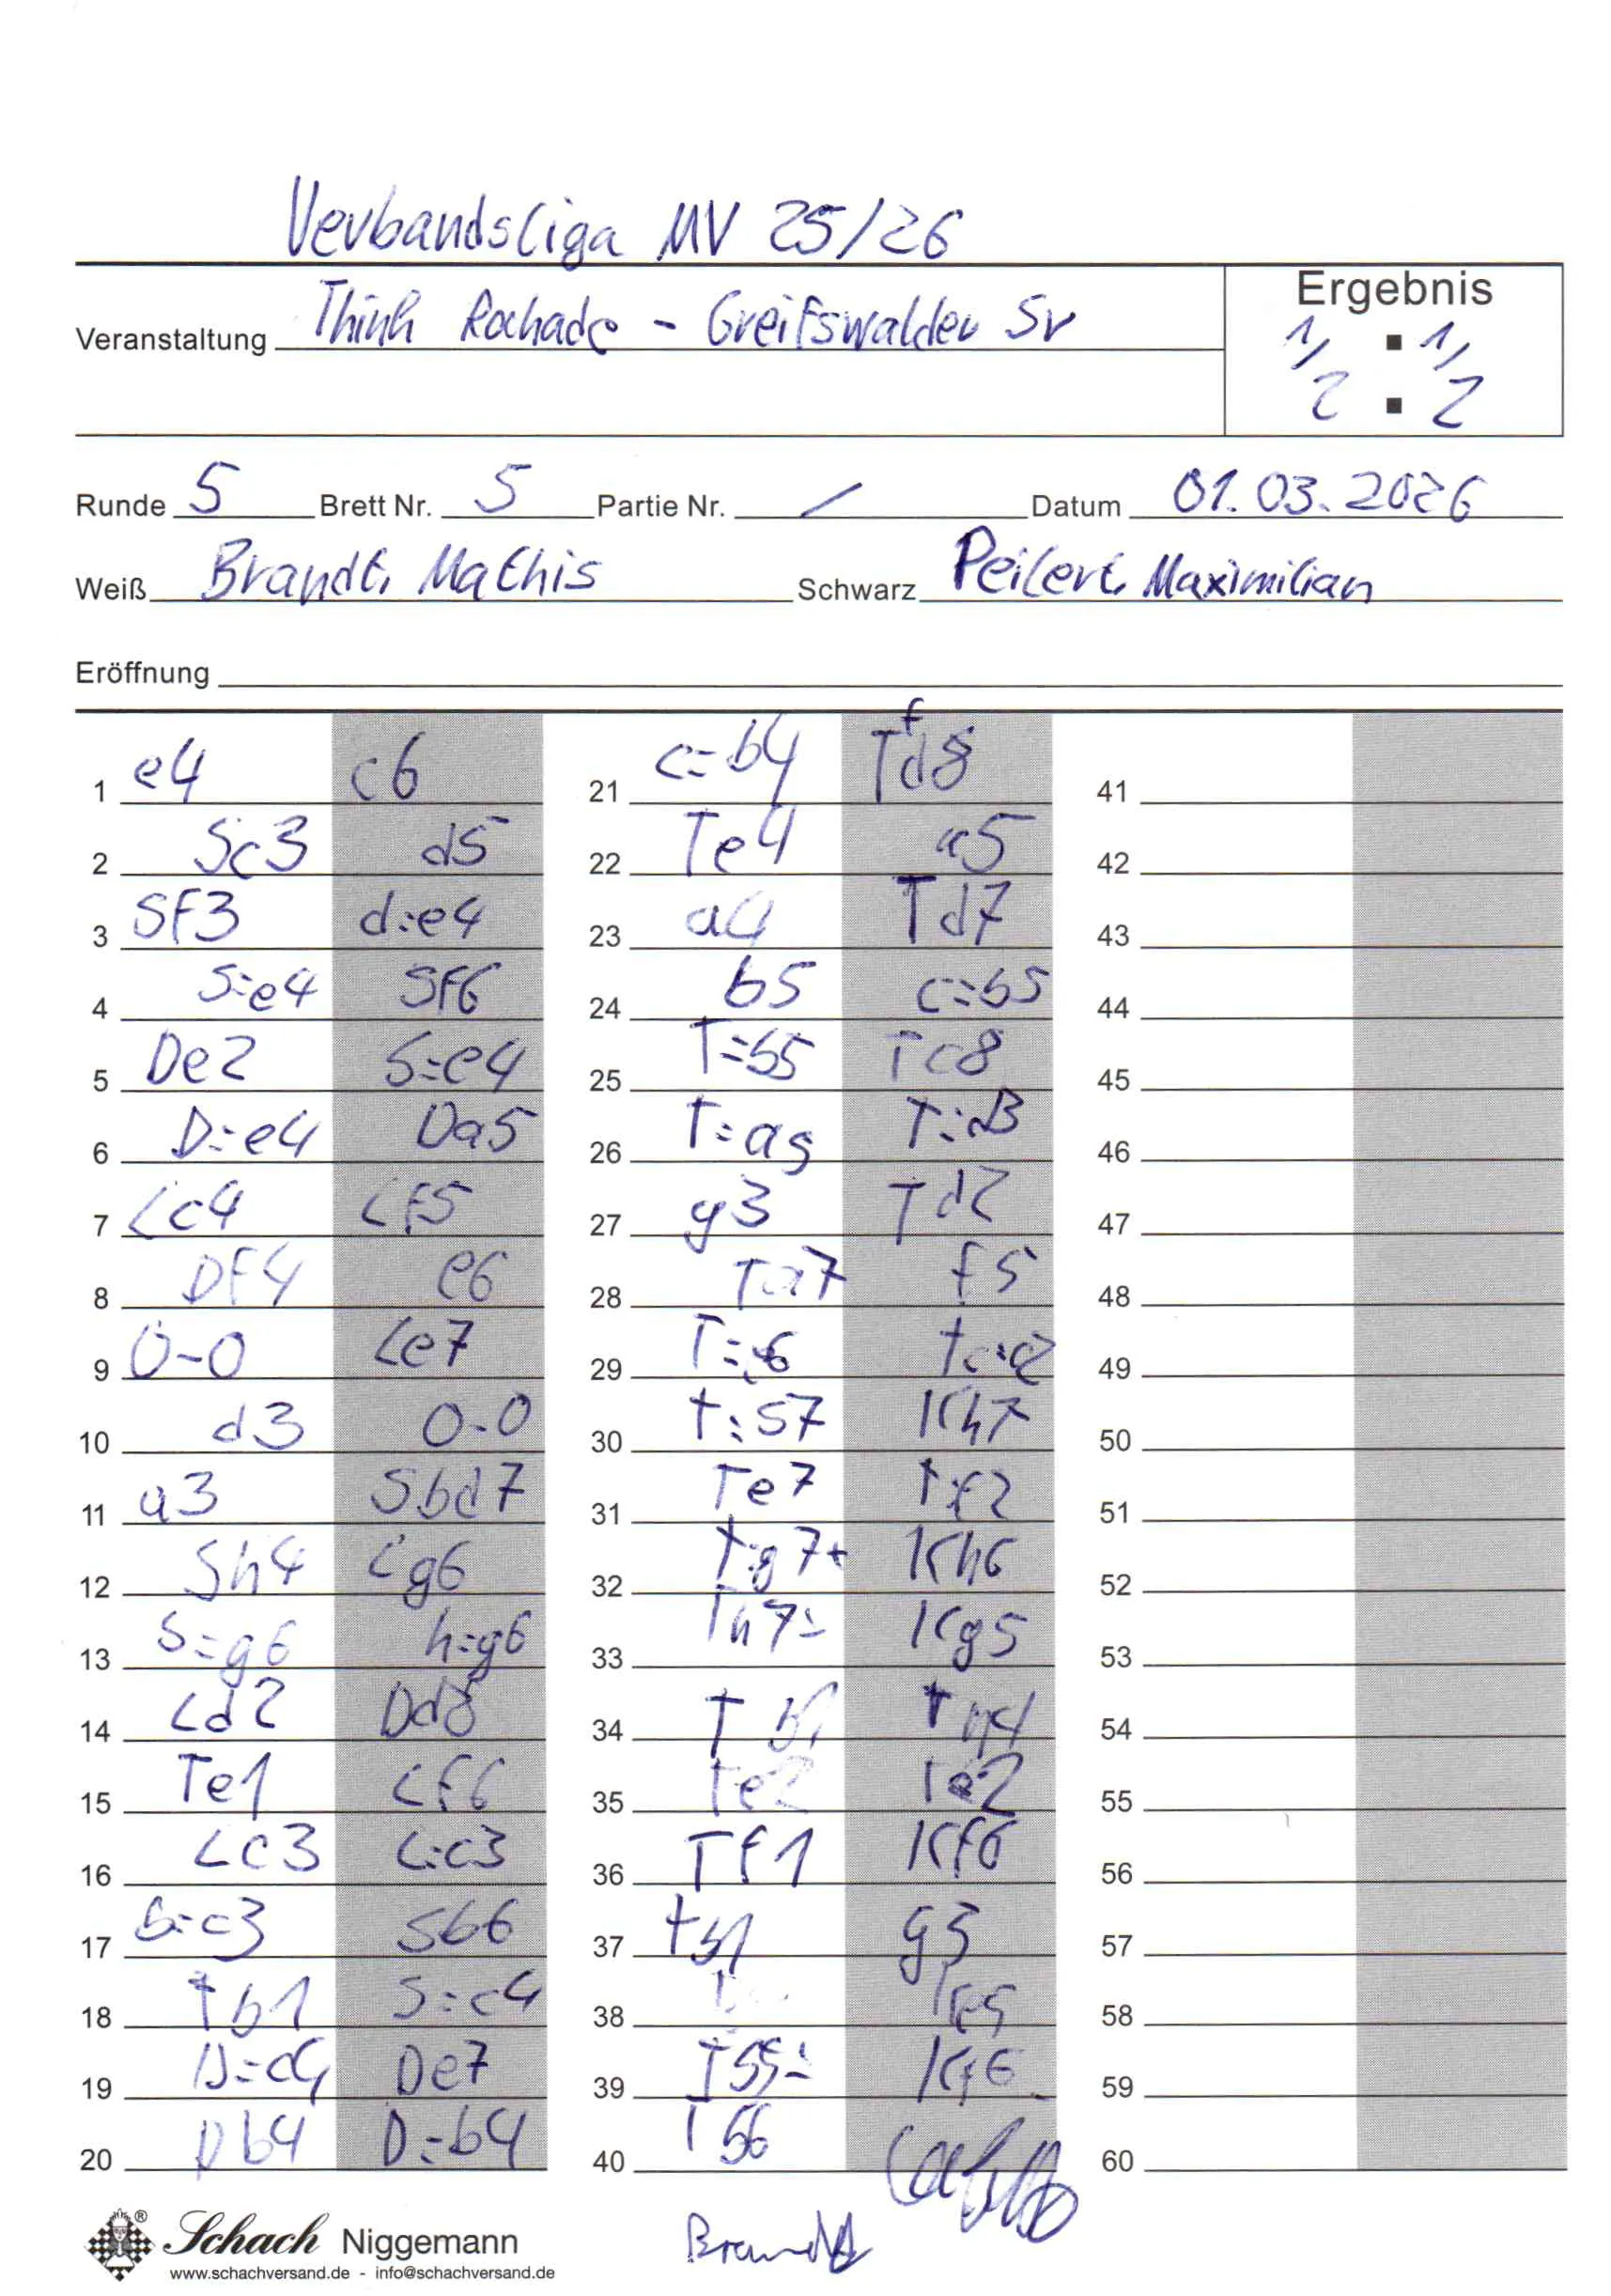 Verbandsliga MV 25/26
Veranstaltung Think Rochade - Greifswalder SV
Ergebnis
1/2 : 1/2
Runde 5 Brett Nr. 5 Partie Nr. / Datum 01.03.2026
Weiß Brandt, Mathis Schwarz Peilert, Maximilian
Eröffnung
1 e4 c6
2 Sc3 d5
3 Sf3 d:e4
4 S:e4 Sf6
5 De2 S:e4
6 D:e4 Da5
7 Lc4 Lf5
8 Df4 e6
9 0-0 Le7
10 d3 0-0
11 a3 Sbd7
12 Sh4 Lg6
13 S:g6 h:g6
14 Ld2 Dd8
15 Te1 Lf6
16 Lc3 L:c3
17 b:c3 Sb6
18 Tb1 S:c4
19 D:c4 De7
20 Db4 D:b4
21 c:b4 Tfd8
22 Te4 a5
23 a4 Td7
24 b5 c:b5
25 T:b5 Tc8
26 T:a5 T:d3
27 g3 Td2
28 Ta7 f5
29 T:e6 Tc:c2
30 T:b7 Kh7
31 Te7 T:f2
32 T:g7+ Kh6
33 Th7+ Kg5
34 Tb1
35 Te2
36 Tf1 Kf6
37 Tb1 g5
38
39 Tb5+ Kf6
40 Tb6
41
42
43
44
45
46
47
48
49
50
51
52
53
54
55
56
57
58
59
60
Brandt
Schach Niggemann
www.schachversand.de - info@schachversand.de